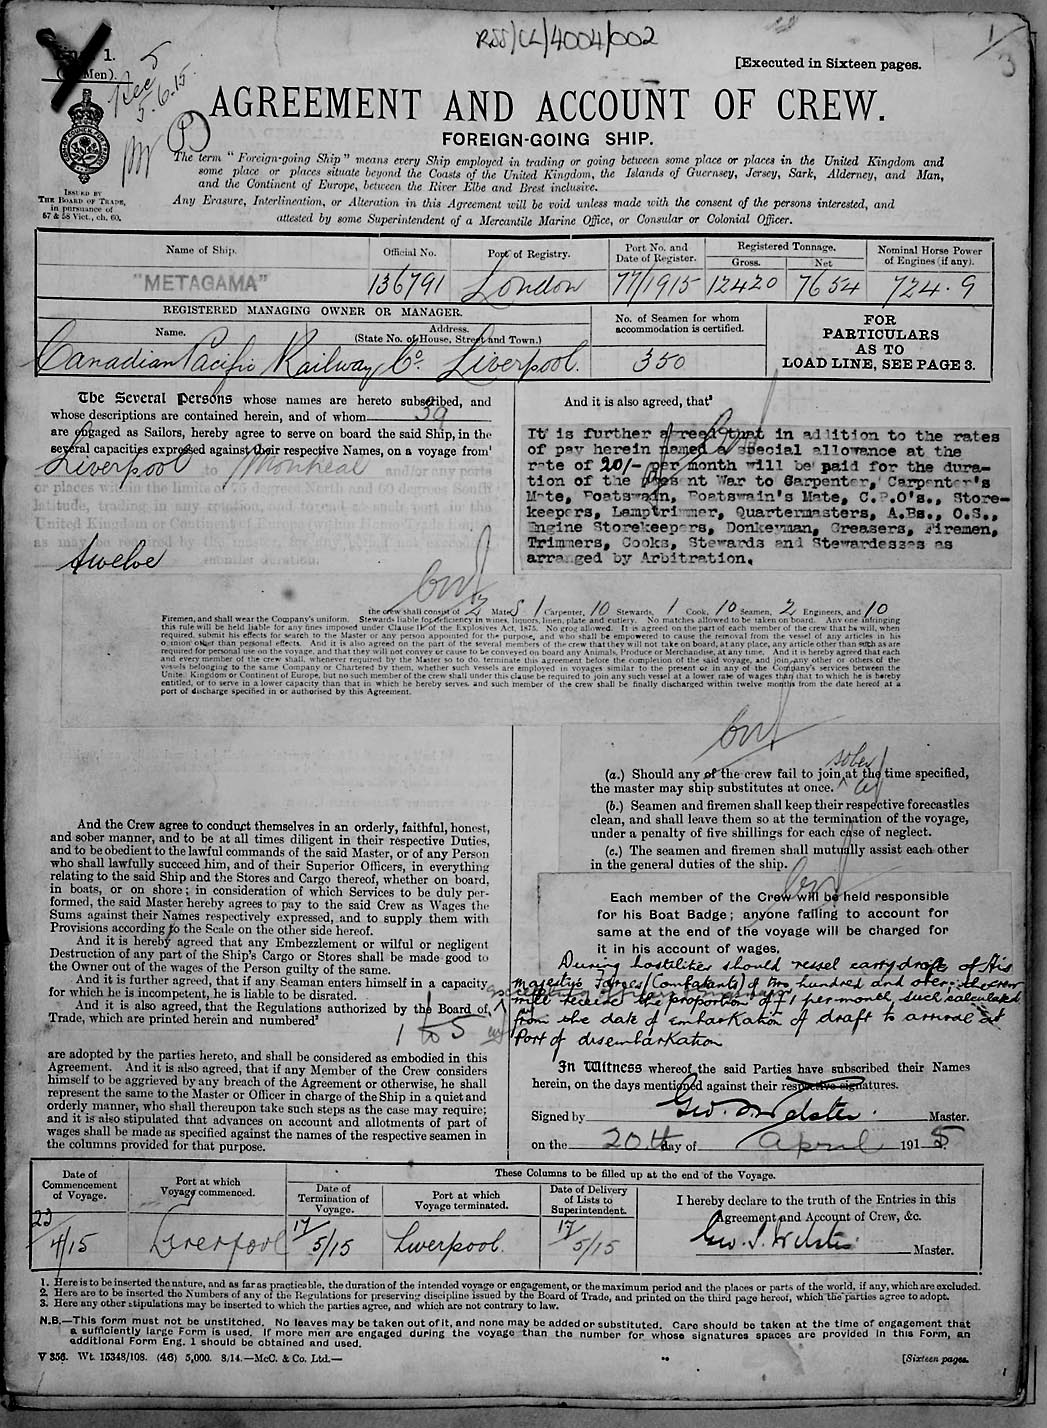 RSS/CL/4004/002
1/3
[Executed in Sixteen pages.
1.
Men).
Rec 5
5.6.15.
AGREEMENT AND ACCOUNT OF CREW.
FOREIGN-GOING SHIP.
The term "Foreign-going Ship" means every Ship employed in trading or going between some place or places in the United Kingdom and
some place or places situate beyond the Coasts of the United Kingdom, the Islands of Guernsey, Jersey, Sark, Alderney, and Man,
and the Continent of Europe, between the River Elbe and Brest inclusive.
Any Erasure, Interlineation, or Alteration in this Agreement will be void unless made with the consent of the persons interested, and
attested by some Superintendent of a Mercantile Marine Office, or Consular or Colonial Officer.
ISSUED BY
THE BOARD OF TRADE,
in pursuance of
57 & 58 Vict., ch. 60.
Name of Ship. Official No. Port of Registry. Port No. and Date of Register. Registered Tonnage. Gross. Net Nominal Horse Power of Engines (if any).
"METAGAMA" 136791 London 77/1915 12420 7654 724.9
REGISTERED MANAGING OWNER OR MANAGER.
Name. Address.
(State No. of House, Street and Town.)
No. of Seamen for whom
accommodation is certified.
FOR
PARTICULARS
AS TO
LOAD LINE, SEE PAGE 3.
Canadian Pacific Railway Co. Liverpool. 350
The Several Persons whose names are hereto subscribed, and
whose descriptions are contained herein, and of whom 39
are engaged as Sailors, hereby agree to serve on board the said Ship, in the
several capacities expressed against their respective Names, on a voyage from¹
Liverpool to Montreal and/or any ports
or places within the limits of 75 degrees North and 60 degrees South
latitude, trading in any rotation, and to end at such port in the
United Kingdom or Continent of Europe (within Home Trade limits)
as may be required by the master, for any period not exceeding
twelve months duration.
And it is also agreed, that³
It is further agreed that in addition to the rates
of pay herein named a special allowance at the
rate of 20/- per month will be paid for the dura-
tion of the present War to Carpenter, Carpenter's
Mate, Boatswain, Boatswain's Mate, C.P.O's., Store-
keepers, Lamptrimmer, Quartermasters, A.Bs., O.S.,
Engine Storekeepers, Donkeyman, Greasers, Firemen,
Trimmers, Cooks, Stewards and Stewardesses as
arranged by Arbitration.
the crew shall consist of 2 Mates 1 Carpenter, 10 Stewards, 1 Cook, 10 Seamen, 2 Engineers, and 10
Firemen, and shall wear the Company's uniform. Stewards liable for deficiency in wines, liquors, linen, plate and cutlery. No matches allowed to be taken on board. Any one infringing
this rule will be held liable for any fines imposed under Clause IF of the Explosives Act, 1875. No grog allowed. It is agreed on the part of each member of the crew that he will, when
required, submit his effects for search to the Master or any person appointed for the purpose, and who shall be empowered to cause the removal from the vessel of any articles in his
or other than personal effects. And it is also agreed on the part of the several members of the crew that they will not take on board, at any place, any article other than such as are
required for personal use on the voyage, and that they will not convey or cause to be conveyed on board any Animals, Produce or Merchandise, at any time. And it is hereby agreed that each
and every member of the crew shall, whenever required by the Master so to do, terminate this agreement before the completion of the said voyage, and join any other or others of the
vessels belonging to the same Company or Chartered by them, whether such vessels are employed in voyages similar to the present or in any of the Company's services between the
United Kingdom or Continent of Europe, but no such member of the crew shall under this clause be required to join any such vessel at a lower rate of wages than that to which he is hereby
entitled, or to serve in a lower capacity than that in which he hereby serves, and such member of the crew shall be finally discharged within twelve months from the date hereof at a
port of discharge specified in or authorised by this Agreement.
And the Crew agree to conduct themselves in an orderly, faithful, honest,
and sober manner, and to be at all times diligent in their respective Duties,
and to be obedient to the lawful commands of the said Master, or of any Person
who shall lawfully succeed him, and of their Superior Officers, in everything
relating to the said Ship and the Stores and Cargo thereof, whether on board,
in boats, or on shore; in consideration of which Services to be duly per-
formed, the said Master hereby agrees to pay to the said Crew as Wages the
Sums against their Names respectively expressed, and to supply them with
Provisions according to the Scale on the other side hereof.
And it is hereby agreed that any Embezzlement or wilful or negligent
Destruction of any part of the Ship's Cargo or Stores shall be made good to
the Owner out of the wages of the Person guilty of the same.
And it is further agreed, that if any Seaman enters himself in a capacity
for which he is incompetent, he is liable to be disrated.
And it is also agreed, that the Regulations authorized by the Board of
Trade, which are printed herein and numbered²
1 to 5
are adopted by the parties hereto, and shall be considered as embodied in this
Agreement. And it is also agreed, that if any Member of the Crew considers
himself to be aggrieved by any breach of the Agreement or otherwise, he shall
represent the same to the Master or Officer in charge of the Ship in a quiet and
orderly manner, who shall thereupon take such steps as the case may require;
and it is also stipulated that advances on account and allotments of part of
wages shall be made as specified against the names of the respective seamen in
the columns provided for that purpose.
sober
(a.) Should any of the crew fail to join at the time specified,
the master may ship substitutes at once.
(b.) Seamen and firemen shall keep their respective forecastles
clean, and shall leave them so at the termination of the voyage,
under a penalty of five shillings for each case of neglect.
(c.) The seamen and firemen shall mutually assist each other
in the general duties of the ship.
Each member of the Crew will be held responsible
for his Boat Badge; anyone failing to account for
same at the end of the voyage will be charged for
it in his account of wages.
During hostilities should vessel carry drafts of His
Majesty's Forces (Combatants) of two hundred and over, the crew
will receive the proportion of £1 per month, such calculated
from the date of embarkation of draft to arrival at
Port of disembarkation
In Witness whereof the said Parties have subscribed their Names
herein, on the days mentioned against their respective signatures.
Signed by Geo. S. Webster. Master.
on the 20th day of April 1915.
Date of
Commencement
of Voyage.
Port at which
Voyage commenced.
These Columns to be filled up at the end of the Voyage.
Date of
Termination of
Voyage.
Port at which
Voyage terminated.
Date of Delivery
of Lists to
Superintendent.
I hereby declare to the truth of the Entries in this
Agreement and Account of Crew, &c.
23/4/15 Liverpool 17/5/15 Liverpool. 17/5/15 Geo. S. Webster Master.
1. Here is to be inserted the nature, and as far as practicable, the duration of the intended voyage or engagement, or the maximum period and the places or parts of the world, if any, which are excluded.
2. Here are to be inserted the Numbers of any of the Regulations for preserving discipline issued by the Board of Trade, and printed on the third page hereof, which the parties agree to adopt.
3. Here any other stipulations may be inserted to which the parties agree, and which are not contrary to law.
N.B.—This form must not be unstitched. No leaves may be taken out of it, and none may be added or substituted. Care should be taken at the time of engagement that
a sufficiently large Form is used. If more men are engaged during the voyage than the number for whose signatures spaces are provided in this Form, an
additional Form Eng. 1 should be obtained and used.
V 356. Wt. 15348/108. (46) 5,000. 8/14.—McC. & Co. Ltd.—
[Sixteen pages.
1